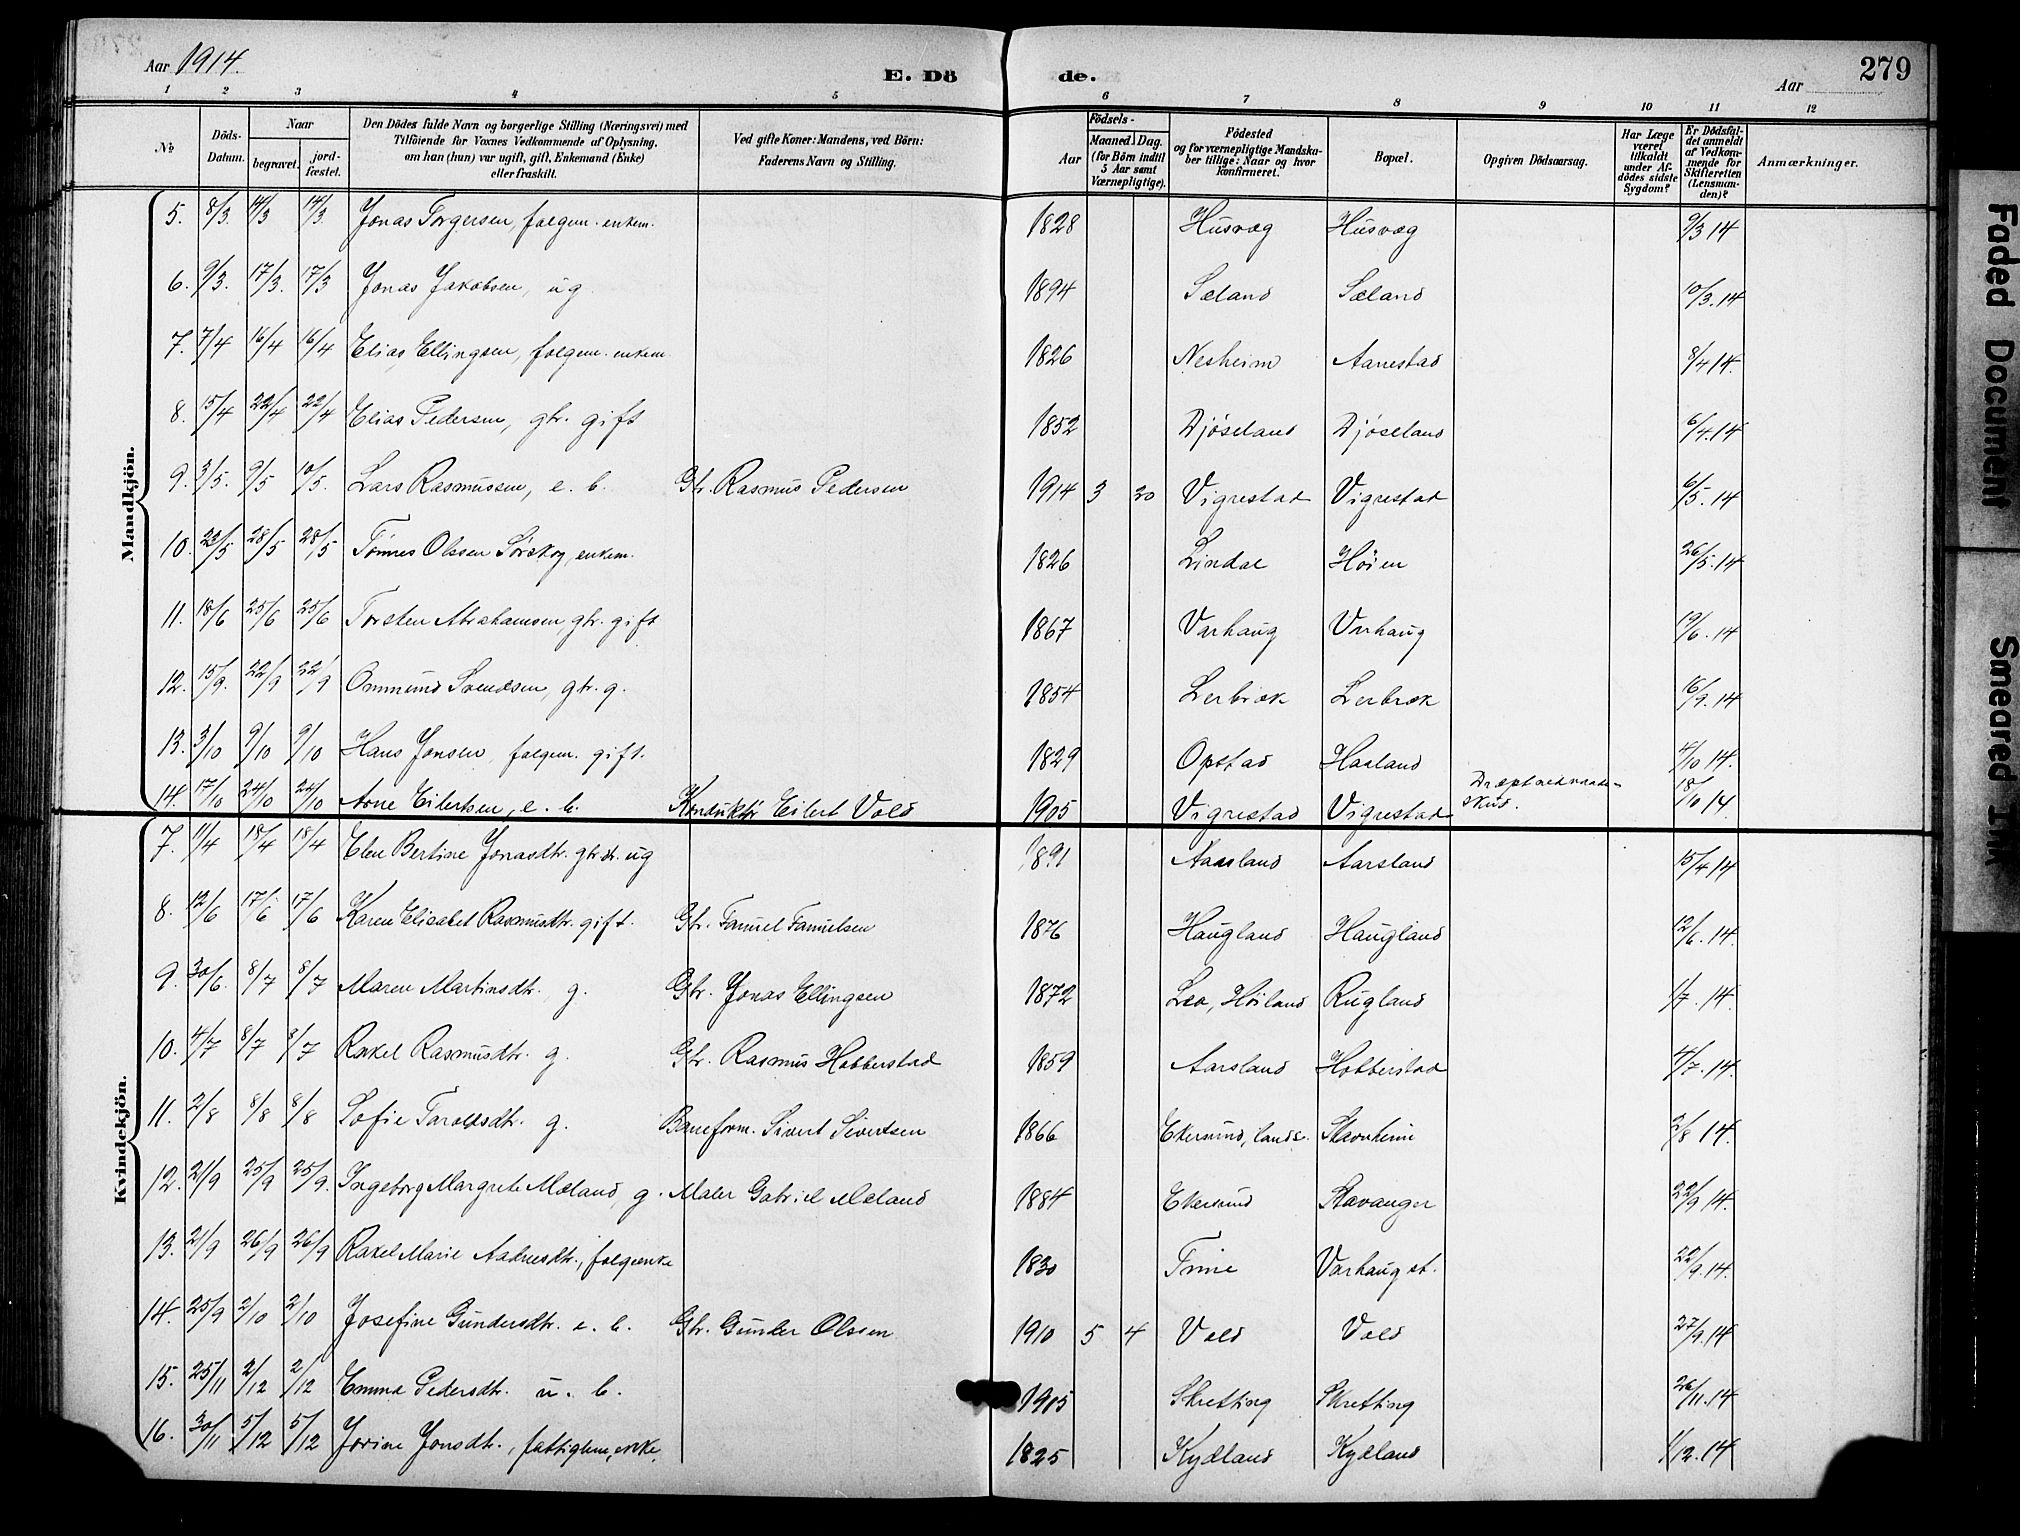 Aar 1914. E. Dö de. Aar 279
1 2 3 4 5 6 7 8 9 10 11 12
No
Döds-Datum.
Naar begravet. jord-fæstet.
Den Dödes fulde Navn og borgerlige Stilling (Næringsvei) med Tilföiende for Voxnes Vedkommende af Oplysning, om han (hun) var ugift, gift, Enkemand (Enke) eller fraskilt.
Ved gifte Koner: Mandens, ved Börn: Faderens Navn og Stilling.
Födsels- Aar Maaned Dag. (for Börn indtil 5 Aar samt Værnepligtige).
Födested og for værnepligtige Mandskaber tillige: Naar og hvor konfirmeret.
Bopæl.
Opgiven Dödsaarsag.
Har Læge været tilkaldt under Afdödes sidste Sygdom?
Er Dödsfaldet anmeldt af Vedkommende for Skifteretten (Lensmanden)?
Anmærkninger.
Mandkjön.
5. 8/3 14/3 14/3 Jonas Torgersen, folgem. enkem. 1828 Husvæg Husvæg 9/3 14
6. 9/3. 17/3. 17/3 Jonas Jakobsen, ug. 1894 Sæland Sæland 10/3. 14
7. 7/4 16/4 16/4 Elias Ellingsen, folgem. enkem. 1826 Nesheim Aanestad 8/4 14.
8. 15/4 22/4 22/4 Elias Pedersen, gbr. gift 1852 Djöseland Djöseland 6/4. 14
9. 3/5. 9/5 10/5. Lars Rasmussen, e. b. Gbr. Rasmus Pedersen 1914 3 20 Vigrestad Vigrestad 6/5. 14
10. 22/5 28/5 28/5 Tönnes Olssen Sörskog, enkem. 1826 Lindal Höien 26/5. 14
11. 18/6 25/6 25/6 Torsten Abrahamsen, gbr. gift 1867 Varhaug Varhaug 19/6. 14
12. 15/9. 22/9 22/9 Ommund Svendsen, gbr. g. 1854 Lerbræk Lerbræk 16/9. 14
13. 3/10 9/10 9/10 Hans Jonsen, folgem. gift. 1829 Opstad Haaland 4/10 14.
14. 17/10 24/10 24/10 Arne Eilertsen, e. b. Konduktör Eilert Vold 1905 Vigrestad Vigrestad 18/10 14
Kvindekjön.
7. 11/4 18/4 18/4 Elen Bertine Jonasdtr. gbr. dt. ug 1891 Aarsland Aarsland 15/4 14
8. 12/6 17/6 17/6 Karen Elisabet Rasmusdtr. gift. Gbr. Tanuel Tanuelsen 1876 Haugland Haugland 12/6. 14.
9. 30/6. 8/7 8/7 Maren Martinsdtr. g. Gbr. Jonas Ellingsen 1872 Lea, Höiland Rugland 1/7. 14.
10. 4/7 8/7 8/7 Rakel Rasmusdtr. g. Gbr. Rasmus Hobberstad 1859 Aarsland Hobberstad 4/7. 14.
11. 2/8 8/8 8/8 Sofie Taroldsdtr. g. Baneform. Sivert Sivertsen 1866 Ekersund, lands. Stavnheim 2/8 14.
12. 21/9 25/9 25/9. Ingeborg Margrete Mæland, g. Maler Gabriel Mæland 1884 Ekersund Stavanger 22/9 14.
13. 21/9 26/9 26/9 Rakel Marie Aadnesdtr., folgeenke 1830 Time Varhaug st. 22/9. 14.
14. 25/9 2/10 2/10 Josefine Gundersdtr. e. b. Gbr. Gunder Olssen 1910 5 4 Vold Vold 27/9. 14
15. 25/11 2/12 2/12 Emma Pedersdtr. u. b. 1905 Skretting Skretting 26/11. 14
16. 30/11 5/12 5/12 Jorine Jonsdtr., fattiglem, enke. 1825 Kydland Kydland 1/12. 14
Faded Document
Smeared Ink